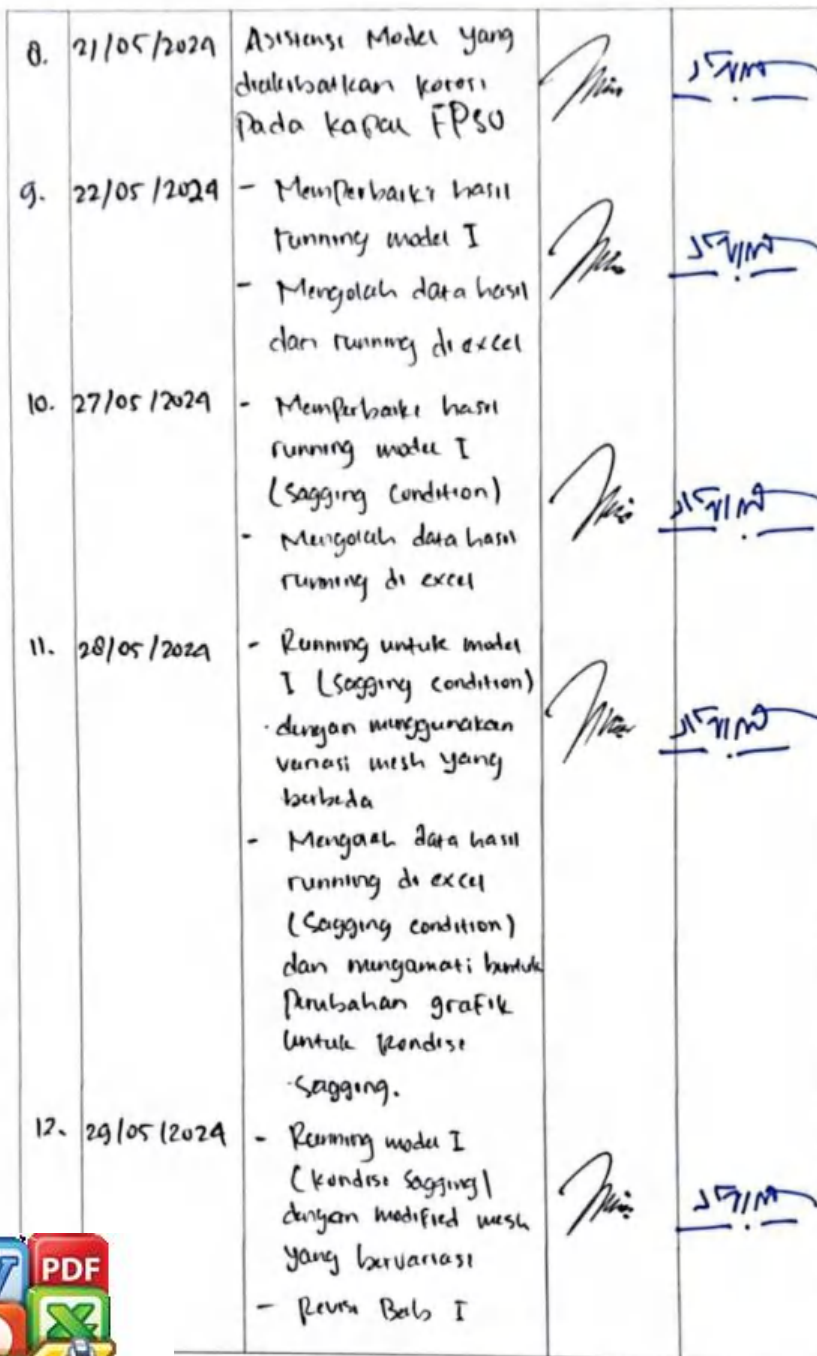 8. 21/05/2024 Asistensi Model yang
diakibatkan korosi
Pada kapal FPSO
9. 22/05/2024 - Memperbaiki hasil
running model I
- Mengolah data hasil
dari running di excel
10. 27/05/2024 - Memperbaiki hasil
running model I
(Sagging Condition)
- Mengolah data hasil
running di excel
11. 28/05/2024 - Running untuk model
I (Sagging condition)
dengan menggunakan
variasi mesh yang
berbeda
- Mengolah data hasil
running di excel
(Sagging condition)
dan mengamati bentuk
Perubahan grafik
untuk kondisi
sagging.
12. 29/05/2024 - Running model I
(kondisi Sagging)
dengan modified mesh
yang bervariasi
- Revisi Bab I
PDF